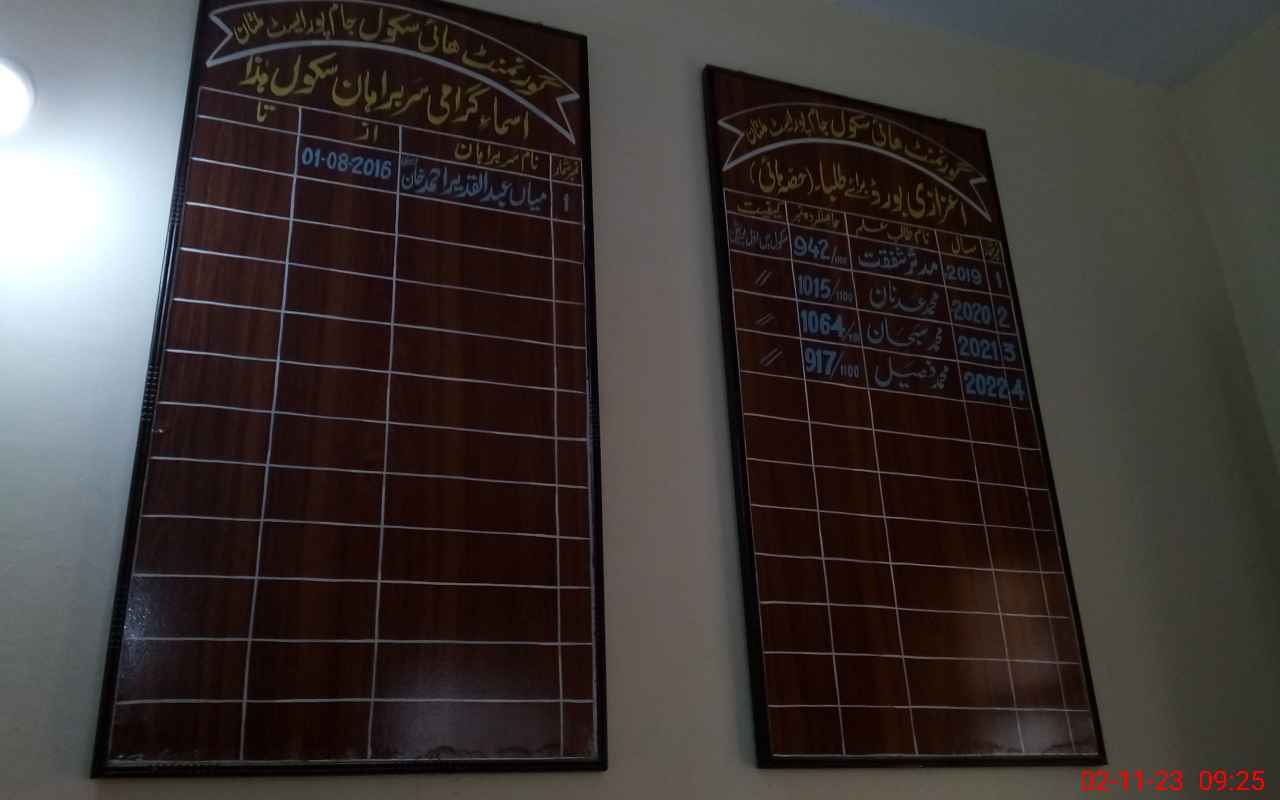 گورنمنٹ ھائی سکول جام پور ایسٹ ملتان
اسماء گرامی سربراہان سکول ہٰذا
نمبر شمار نام سربراہان از تا
1 میاں عبدالقدیر احمد خان 01-08-2016
گورنمنٹ ھائی سکول جام پور ایسٹ ملتان
اعزازی بورڈ برائے طلباء (حصہ ہائی)
نمبر شمار سال نام طالب علم حاصل کردہ نمبر کیفیت
1 2019 مدثر شفقت 942/1100 سکول میں اول پوزیشن
2 2020 محمد عدنان 1015/1100 //
3 2021 محمد سبحان 1064/1100 //
4 2022 محمد فصیل 917/1100 //
02-11-23 09:25